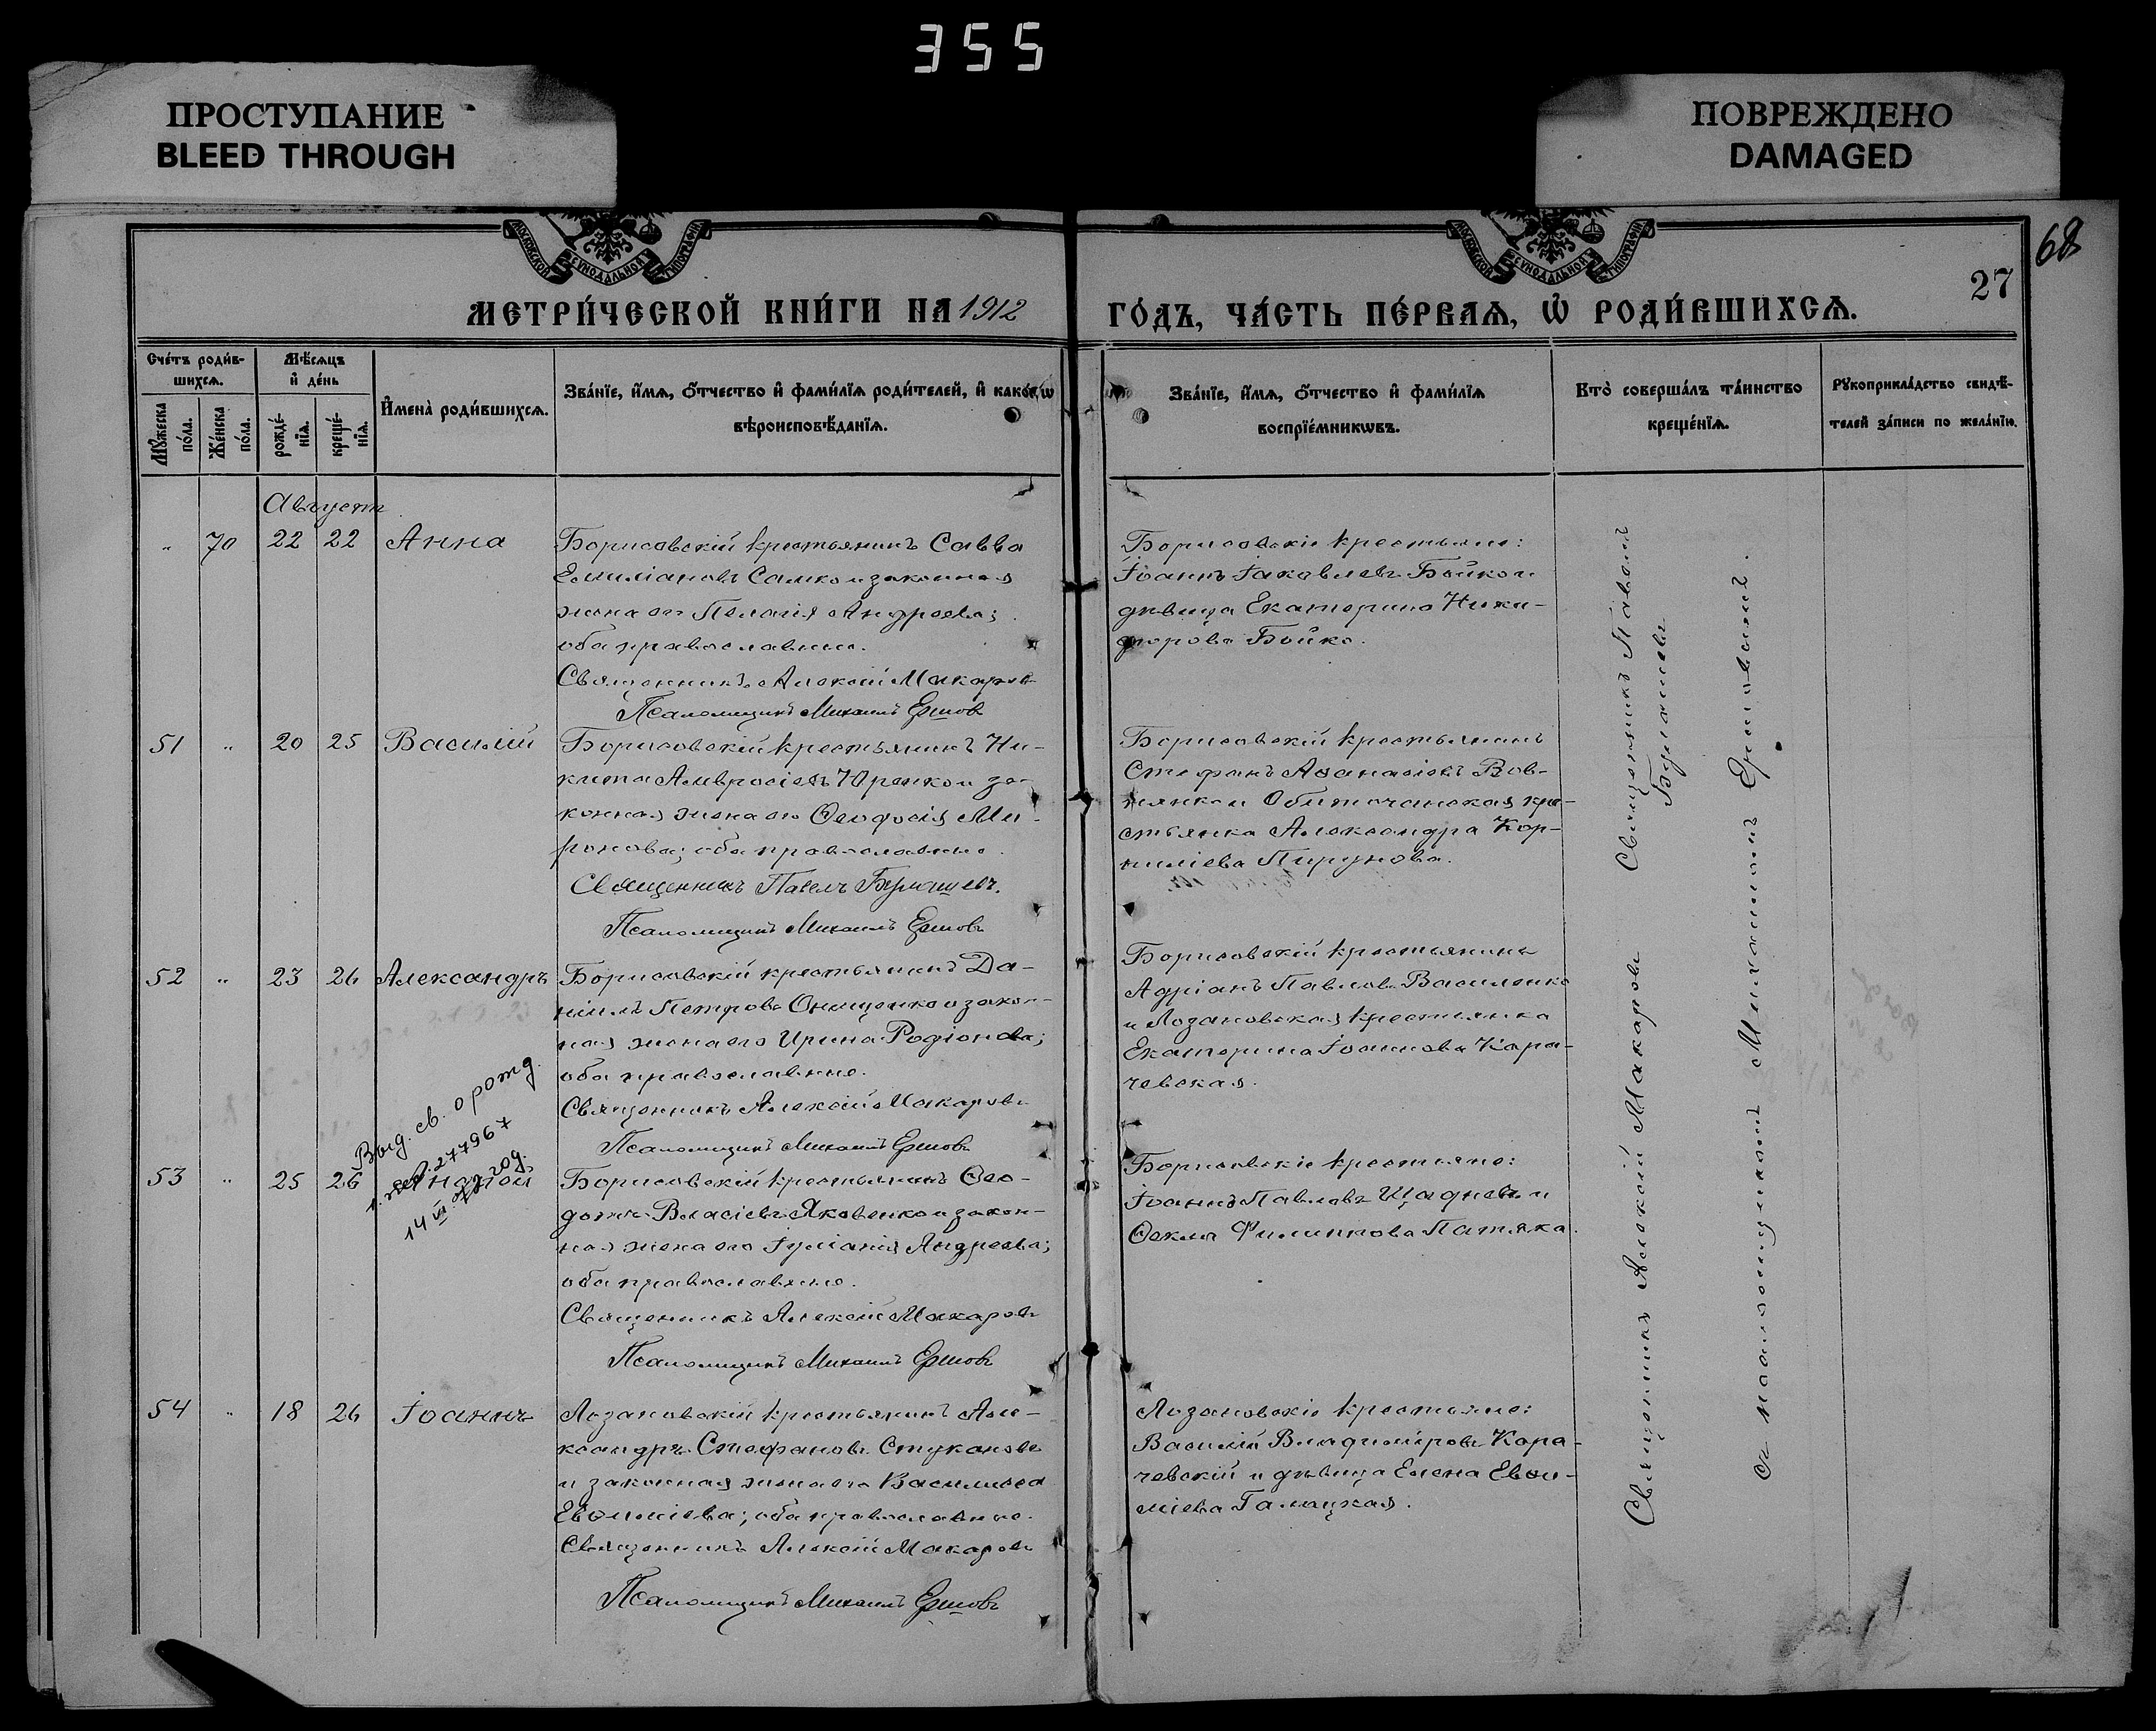 355
ПРОСТУПАНИЕ
BLEED THROUGH
ПОВРЕЖДЕНО
DAMAGED
МОСКОВСКОЙ СУНОДАЛЬНОЙ ТИПОГРАФІИ
МОСКОВСКОЙ СУНОДАЛЬНОЙ ТИПОГРАФІИ
68
27
МЕТРИ́ЧЕСКОЙ КНИ́ГИ НА 1912 ГО́ДЪ, ЧА́СТЬ ПЕ́РВАЯ, Ѡ РОДИ́ВШИХСЯ.
Сче́тъ роди́в-
шихся.
Мѣ́сяцъ
и де́нь
Му́жеска по́ла.
Же́нска по́ла.
рожде́-
нія.
креще́-
нія.
Имена̀ роди́вшихся.
Зва́нїе, и́мя, о́тчество и фами́лїя роди́телей, и како́гѡ
вѣроисповѣ́данїя.
Зва́нїе, и́мя, о́тчество и фами́лїя
воспрїе́мникѡвъ.
Кто̀ соверша́лъ та́инство
креще́нїя.
Рукоприкла́дство свидѣ́-
телей за́писи по жела́нїю.
Августъ
" 70 22 22 Анна
Борисовскій крестьянинъ Савва
Емиліановъ Самко и законная
жена его Пелагія Андреева;
оба православные.
Священникъ Алексій Макаровъ
Псаломщикъ Михаилъ Ершовъ
Борисовскіе крестьяне:
Іоаннъ Іаковлевъ Бойко и
дѣвица Екатерина Ники-
форова Бойко.
51 " 20 25 Василій
Борисовскій крестьянинъ Ни-
кита Амвросіевъ Юренко и за-
конная жена его Ѳеодосія Ми-
ронова; оба православные.
Священникъ Павелъ
Псаломщикъ Михаилъ Ершовъ
Борисовскій крестьянинъ
Стефанъ Аѳанасіевъ Вов-
нянко и Обиточанская кре-
стьянка Александра Кор-
ниліева
52 " 23 26 Александръ
Борисовскій крестьянинъ Да-
ніилъ Петровъ Онищенко и закон-
ная жена его Ирина Родіонова;
оба православные.
Священникъ Алексій Макаровъ
Псаломщикъ Михаилъ Ершовъ
Борисовскій крестьянинъ
Адріанъ Павловъ Василенко
и Лозановская крестьянка
Екатерина Іоаннова Кара-
чевская.
Выд. св. о рожд.
277967
14 VI год.
53 " 25 26
Борисовскій крестьянинъ Ѳео-
дотъ Власіевъ Яковенко и закон-
ная жена его Іуліанія Андреева;
оба православные.
Священникъ Алексій Макаровъ
Псаломщикъ Михаилъ Ершовъ
Борисовскіе крестьяне:
Іоаннъ Павловъ и
Ѳекла Филиппова Патяка.
54 " 18 26 Іоаннъ
Лозановскій крестьянинъ Але-
ксандръ Стефановъ Стукановъ
и законная жена его Василисса
Евѳиміева; оба православные.
Священникъ Алексій Макаровъ
Псаломщикъ Михаилъ Ершовъ
Лозановскіе крестьяне:
Василій Владиміровъ Кара-
чевскій и дѣвица Елена Евѳи-
міева Галицкая.
Священникъ Павелъ
Священникъ Алексій Макаровъ
съ псаломщикомъ Михаиломъ Ершовымъ.